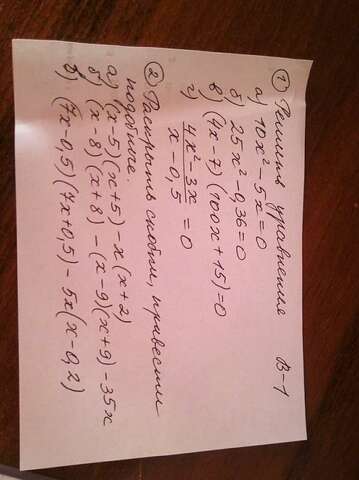 ① Решить уравнения В-1
а) 10x² - 5x = 0
б) 25x² - 0,36 = 0
в) (4x - 7)(100x + 15) = 0
г) 4x² - 3x / x - 0,5 = 0
② Раскрыть скобки, привести
подобные.
а) (x - 5)(x + 5) - x(x + 2)
б) (x - 8)(x + 8) - (x - 9)(x + 9) - 35x
в) (7x - 0,5)(7x + 0,5) - 5x(x - 0,2)